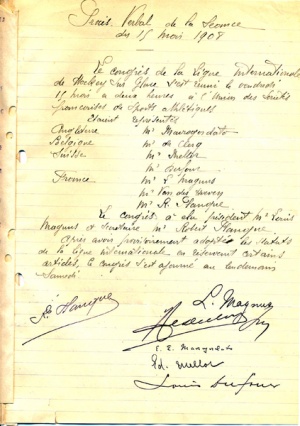 Procès Verbal de la Séance
du 15 mai 1908
Le congrès de la Ligue Internationale
de Hockey sur Glace s'est réuni le vendredi
15 mai à deux heures à l'Union des Sociétés
françaises de Sports athlétiques
Etaient représentés
Angleterre Mr Mavrogordato
Belgique Mr de Clercq
Suisse Mr Mellor
Mr Dufour
France Mr L. Magnus
Mr Van der Hoeven
Mr R. Planque
Le congrès a élu président Mr Louis
Magnus et secrétaire Mr Robert Planque
Après avoir provisoirement adopté les statuts
de la Ligue internationale en réservant certains
articles, le congrès s'est ajourné au lendemain
Samedi
R. Planque
L. Magnus
E. E. Mavrogordato
Ed. Mellor
Louis Dufour